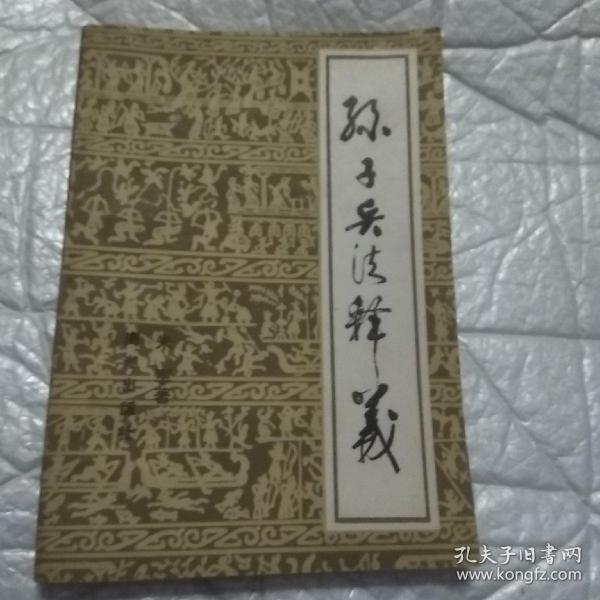 孙子兵法释义
朱军著
海洋出版社
孔夫子旧書网
www.kongfz.com